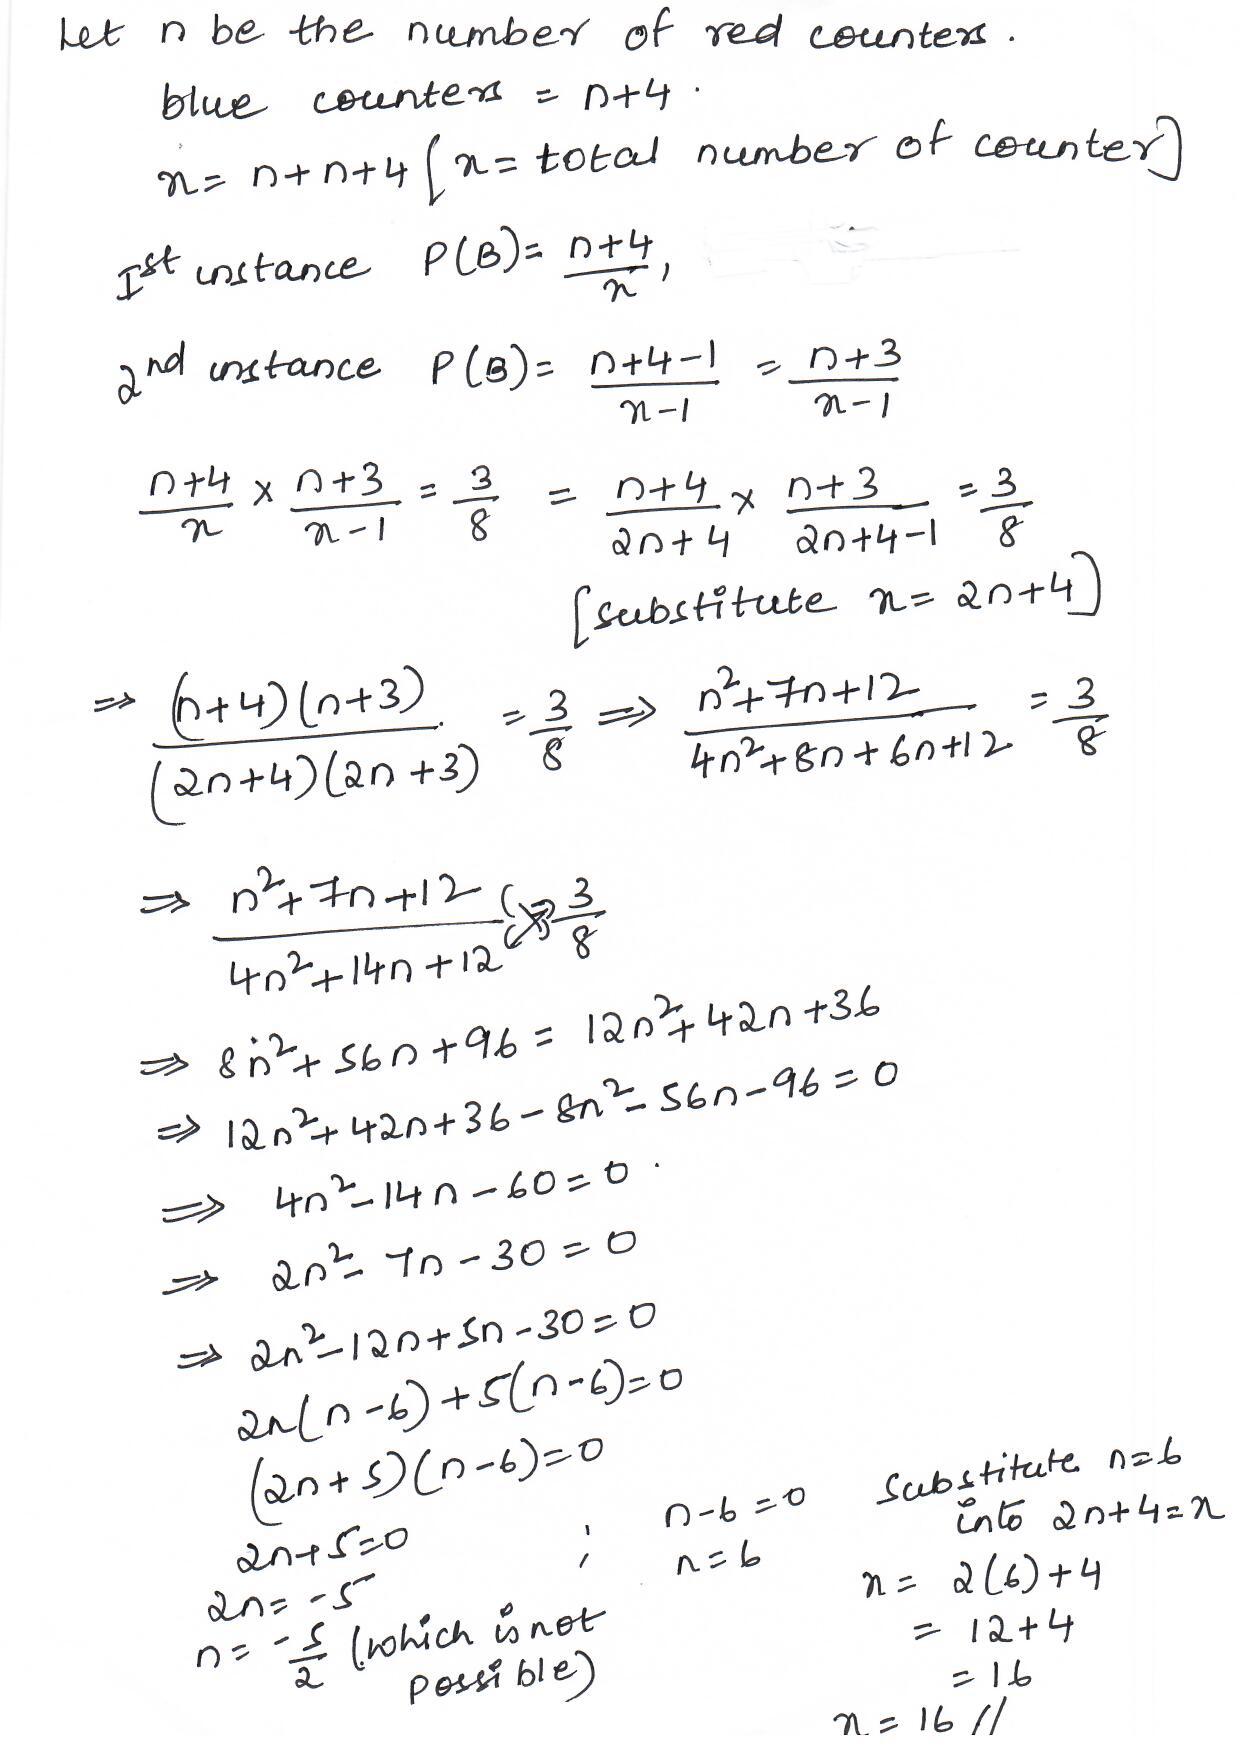 Let n be the number of red counters.
blue counters = n+4.
x = n+n+4 [x = total number of counter]
Ist instance P(B) = (n+4)/x,
2nd instance P(B) = (n+4-1)/(x-1) = (n+3)/(x-1)
(n+4)/x × (n+3)/(x-1) = 3/8 = (n+4)/(2n+4) × (n+3)/(2n+4-1) = 3/8
[substitute x = 2n+4]
⇒ (n+4)(n+3)/(2n+4)(2n+3) = 3/8 ⇒ (n²+7n+12)/(4n²+8n+6n+12) = 3/8
⇒ (n²+7n+12)/(4n²+14n+12) = 3/8
⇒ 8n²+56n+96 = 12n²+42n+36
⇒ 12n²+42n+36-8n²-56n-96=0
⇒ 4n²-14n-60=0.
⇒ 2n²-7n-30=0
⇒ 2n²-12n+5n-30=0
2n(n-6)+5(n-6)=0
(2n+5)(n-6)=0
2n+5=0 ; n-6=0
2n=-5 n=6
n=-5/2 (which is not
possible)
Substitute n=6
into 2n+4=x
x = 2(6)+4
= 12+4
= 16
x = 16 //